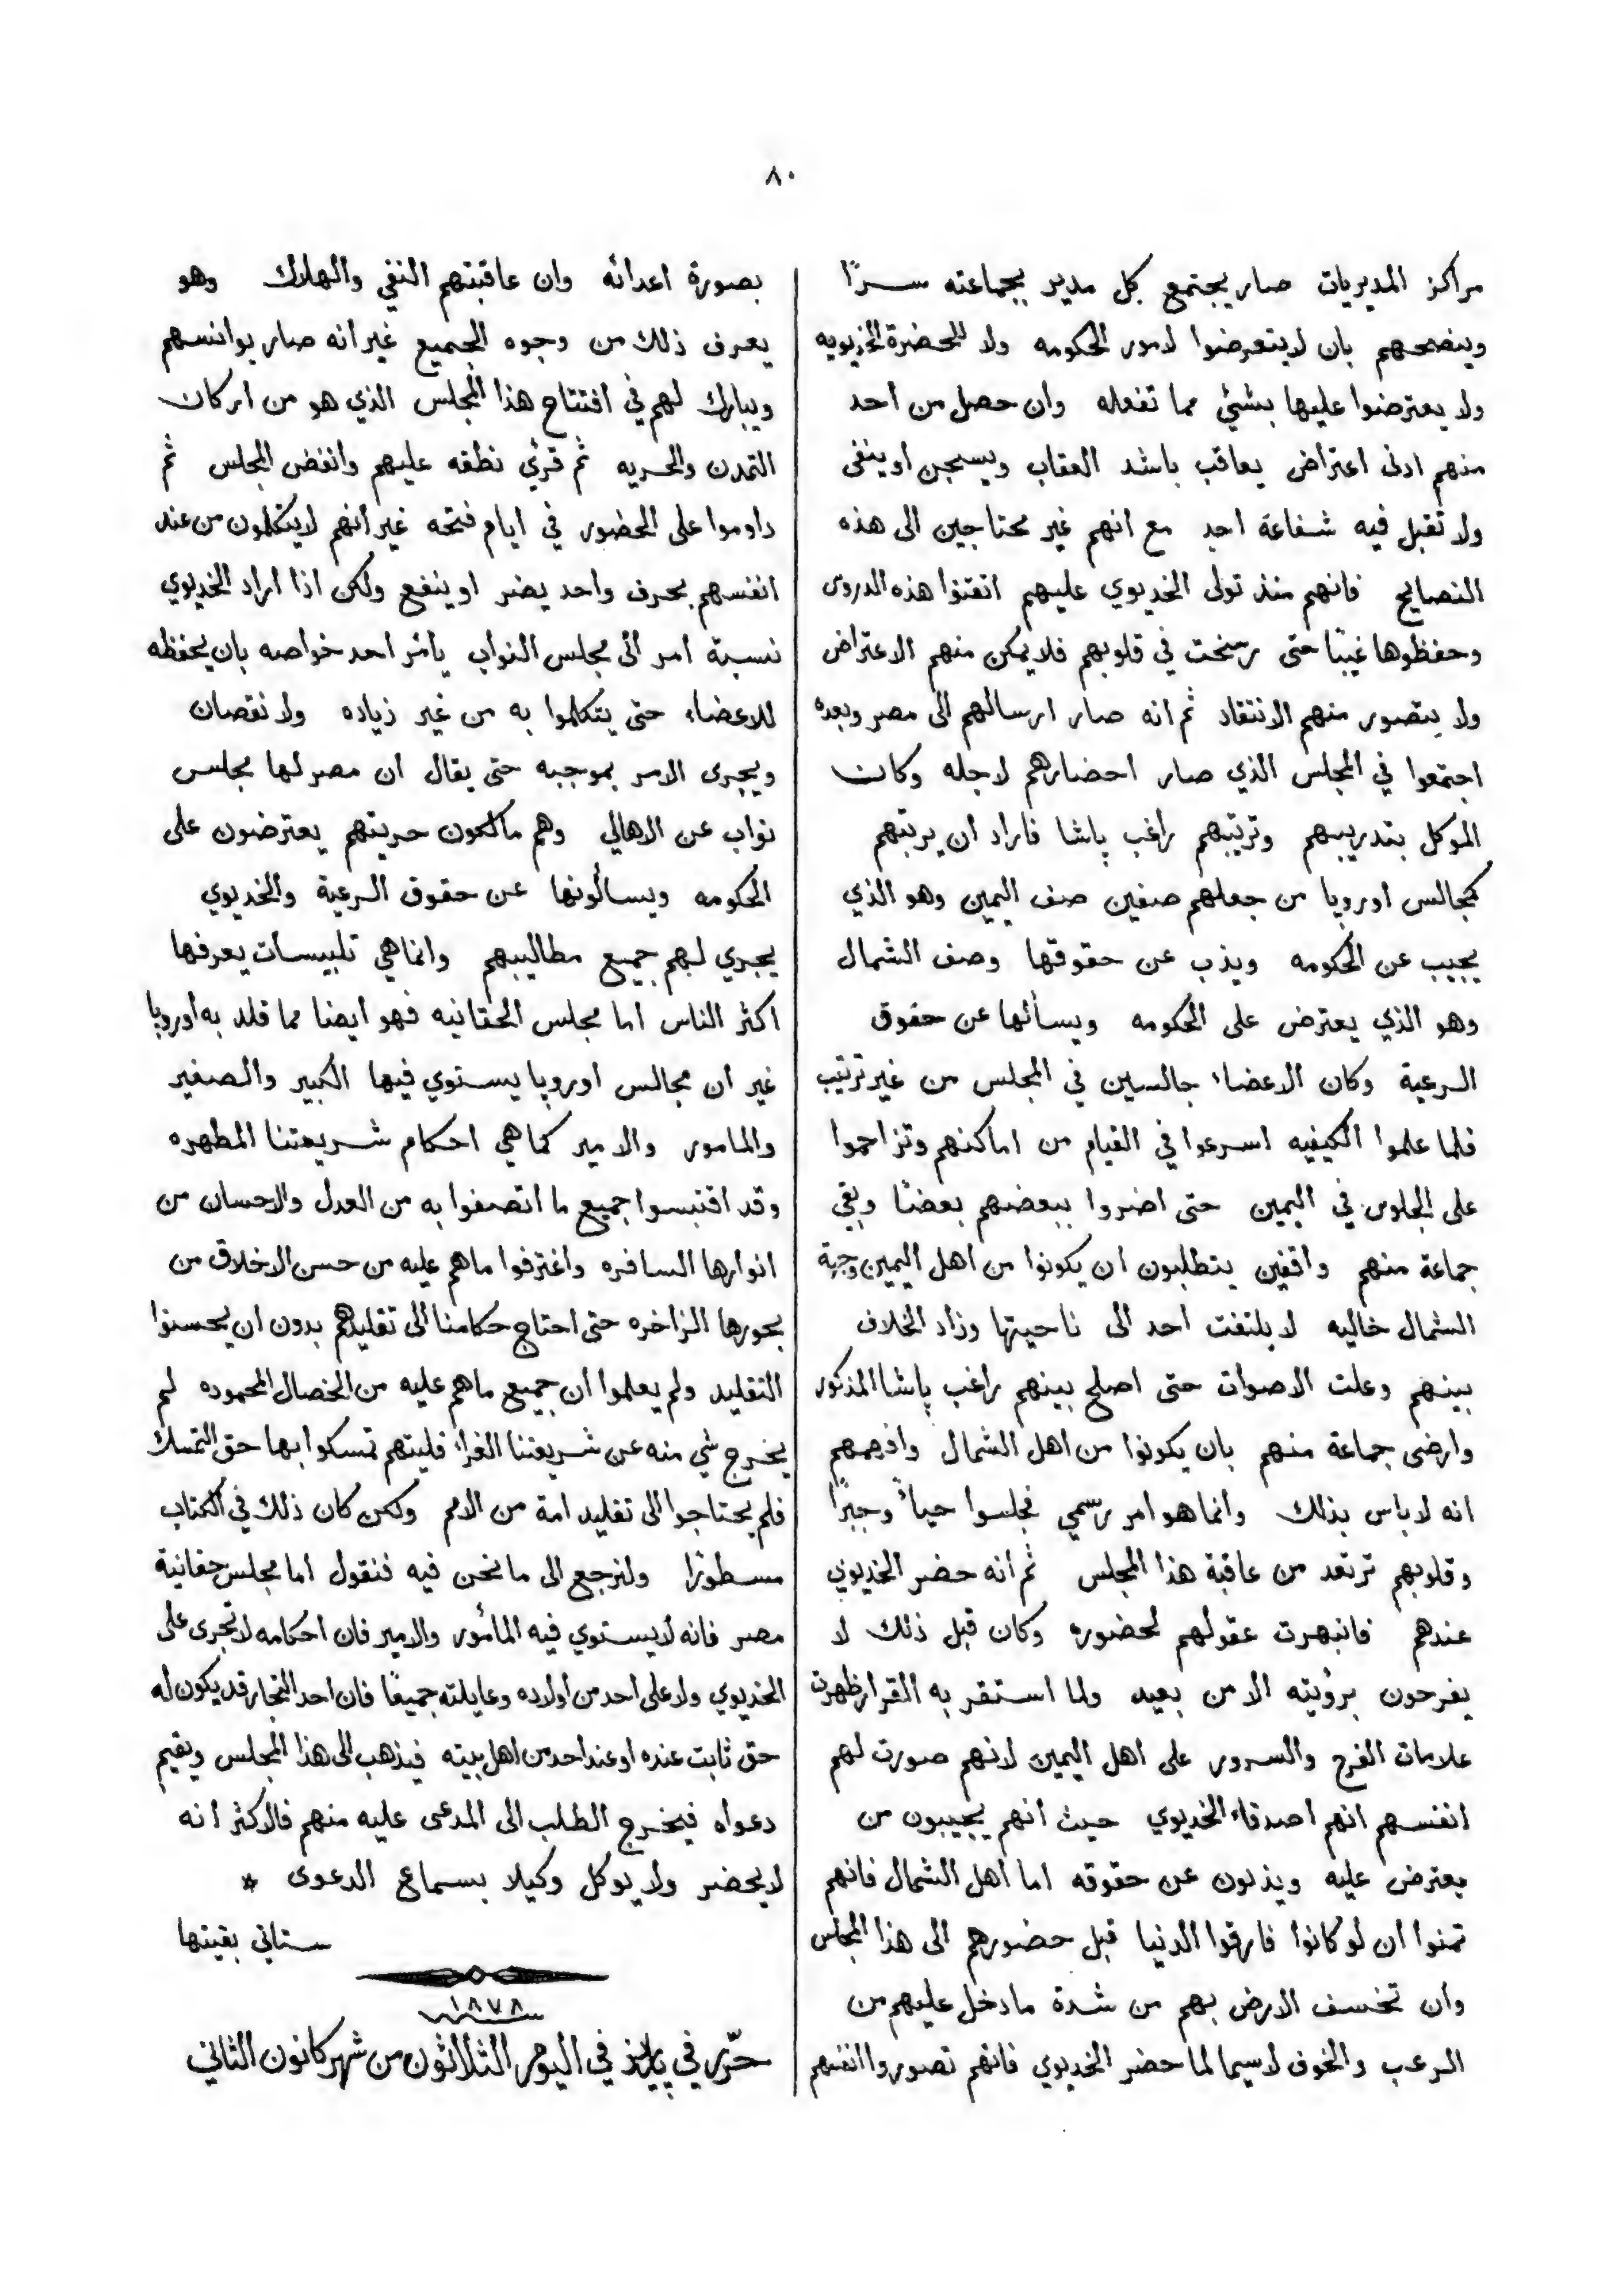 ٨٠
مراكز المديريات صار يجتمع كل مدير بجماعته سرًا
وينصحهم بان لا يتعرضوا لامور الحكومه ولا للحضرة الخديويه
ولا يعترضوا عليها بشئي مما تفعله وان حصل من احد
منهم ادنى اعتراض يعاقب باشد العقاب ويسجن او ينفى
ولا تقبل فيه شفاعة احد مع انهم غير محتاجين الى هذه
النصايح فانهم منذ تولى الخديوي عليهم اتقنوا هذه الدروس
وحفظوها غيبًا حتى رسخت في قلوبهم فلا يمكن منهم الاعتراض
ولا يتصور منهم الانتقاد ثم انه صار ارسالهم الى مصر وبعده
اجتمعوا في المجلس الذي صار احضارهم لاجله وكان
الموكل بتدريبهم وترتيبهم راغب پاشا فاراد ان يرتبهم
كمجالس اوروپا من جعلهم صفين صف اليمين وهو الذي
يجيب عن الحكومه ويذب عن حقوقها وصف الشمال
وهو الذي يعترض على الحكومه ويسألها عن حقوق
الرعية وكان الاعضاء جالسين في المجلس من غير ترتيب
فلما علموا الكيفيه اسرعوا في القيام من اماكنهم وتزاحموا
على الجلوس في اليمين حتى اضروا ببعضهم بعضًا وبقي
جماعة منهم واقفين يتطلبون ان يكونوا من اهل اليمين وجهة
الشمال خاليه لا يلتفت احد الى ناحيتها وزاد الخلاف
بينهم وعلت الاصوات حتى اصلح بينهم راغب پاشا المذكور
وارضى جماعة منهم بان يكونوا من اهل الشمال وافهمهم
انه لا باس بذلك وانما هو امر رسمي فجلسوا حياءً وجبرًا
وقلوبهم ترتعد من عاقبة هذا المجلس ثم انه حضر الخديوي
عندهم فانبهرت عقولهم لحضوره وكان قبل ذلك لا
يفرحون برؤيته الا من بعيد ولما استقر به القرار ظهرت
علامات الفرح والسرور على اهل اليمين لانهم صورت لهم
انفسهم انهم اصدقاء الخديوي حيث انهم يجيبون من
يعترض عليه ويذبون عن حقوقه اما اهل الشمال فانهم
تمنوا ان لو كانوا فارقوا الدنيا قبل حضورهم الى هذا المجلس
وان تخسف الارض بهم من شدة ما دخل عليهم من
الرعب والخوف لاسيما لما حضر الخديوي فانهم تصوروا انفسهم
بصورة اعدائه وان عاقبتهم النفي والهلاك وهو
يعرف ذلك من وجوه الجميع غير انه صار يوانسهم
ويبارك لهم في افتتاح هذا المجلس الذي هو من اركان
التمدن والحريه ثم قرئ نطقه عليهم وانفض المجلس ثم
داوموا على الحضور في ايام فتحه غير انهم لا يتكلمون من عند
انفسهم بحرف واحد يضر او ينفع ولكن اذا اراد الخديوي
نسبة امر الى مجلس النواب يأمر احد خواصه بان يحفظه
للاعضاء حتى يتكلموا به من غير زياده ولا نقصان
ويجرى الامر بموجبه حتى يقال ان مصر لها مجلس
نواب عن الاهالي وهم مالكون حريتهم يعترضون على
الحكومه ويسألونها عن حقوق الرعية والخديوي
يجري لهم جميع مطاليبهم وانما هي تلبيسات يعرفها
اكثر الناس اما مجلس الحقانيه فهو ايضا مما قلد به أوروپا
غير ان مجالس اوروپا يستوي فيها الكبير والصغير
والمامور والامير كما هي احكام شريعتنا المطهره
وقد اقتبسوا جميع ما اتصفوا به من العدل والاحسان من
انوارها السافره واغترفوا ما هم عليه من حسن الاخلاق من
بحورها الزاخره حتى احتاج حكامنا الى تقليدهم بدون ان يحسنوا
التقليد ولم يعلموا ان جميع ما هم عليه من الخصال المحموده لم
يخرج شي منه عن شريعتنا الغراء فليتهم تمسكوا بها حق التمسك
فلم يحتاجوا الى تقليد امة من الامم ولكن كان ذلك في الكتاب
مسطورًا ولنرجع الى ما نحن فيه فنقول اما مجلس حقانية
مصر فانه لا يستوي فيه المأمور والامير فان احكامه لا تجرى على
الخديوي ولا على احد من أولاده وعايلته جميعًا فان احد التجار قد يكون له
حق ثابت عنده او عند احد من اهل بيته فيذهب الى هذا المجلس ويقيم
دعواه فيخرج الطلب الى المدعى عليه منهم فالاكثر أنه
لا يحضر ولا يوكل وكيلا بسماع الدعوى *
ستاتي بقيتها
١٨٧٨
حرّر في پاريز في اليوم الثلاثون من شهر كانون الثاني